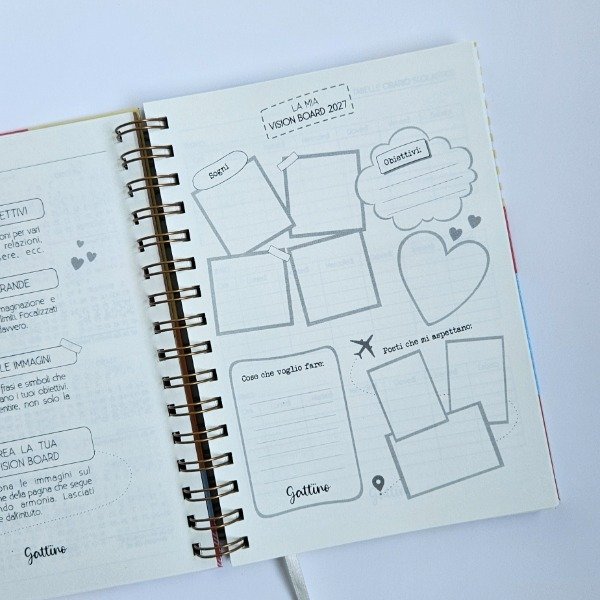 ETTIVI
oni per vari
relazioni,
sere, ecc.
RANDE
maginazione e
limiti. Focalizzati
davvero.
LE IMMAGINI
frasi e simboli che
ano i tuoi obiettivi.
embre, non solo la
REA LA TUA
VISION BOARD
ona le immagini sul
ne della pagina che segue
ndo armonia. Lasciati
e dall'intuito.
Gattino
LA MIA
VISION BOARD 2027
Sogni
Obiettivi
Cose che voglio fare:
Posti che mi aspettano:
Gattino